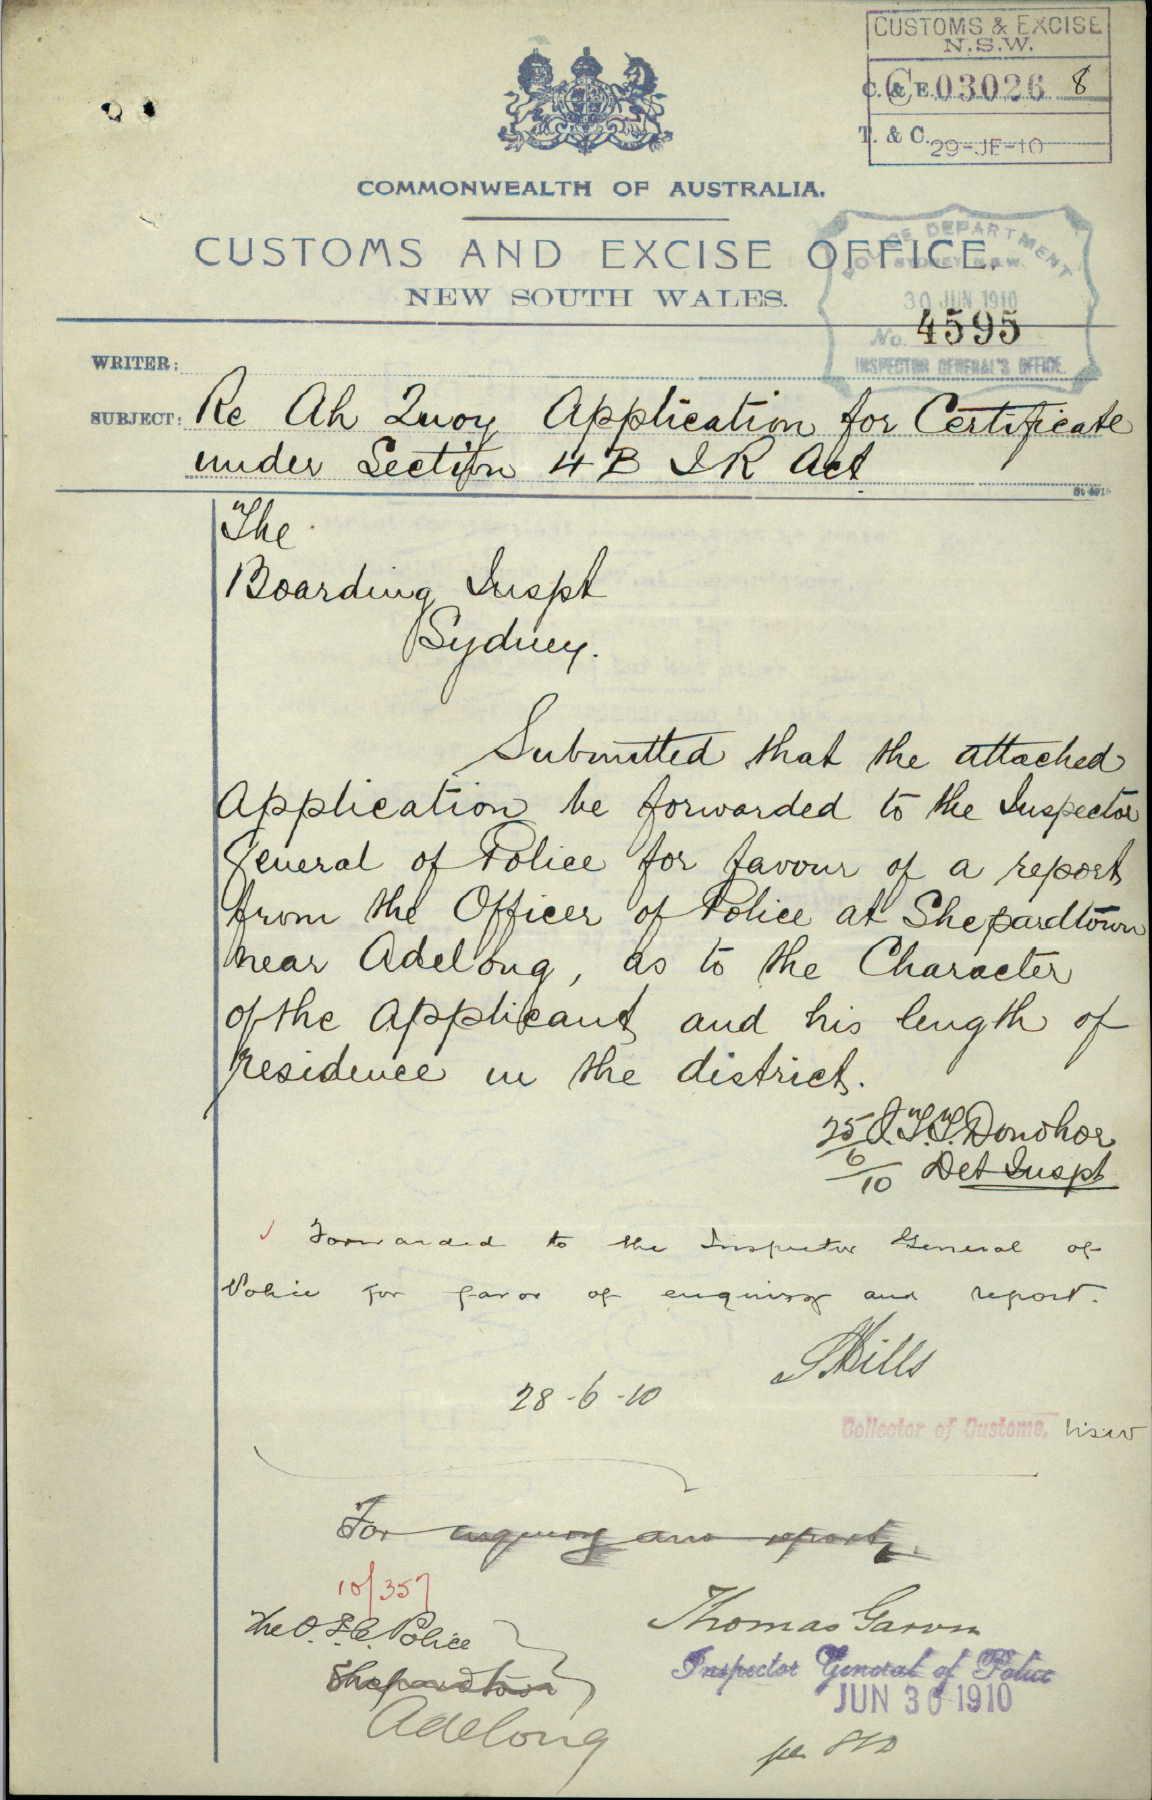 CUSTOMS & EXCISE
N.S.W.
C. & E. C 03026 8
T. & C. 29-JE-10
COMMONWEALTH OF AUSTRALIA.
CUSTOMS AND EXCISE OFFICE.
NEW SOUTH WALES.
POLICE DEPARTMENT
SYDNEY N.S.W.
30 JUN 1910
No. 4595
INSPECTOR GENERAL'S OFFICE.
WRITER:
SUBJECT: Re Ah Quoy Application for Certificate
under Section 4B I R Act
The
Boarding Inspt
Sydney.
Submitted that the attached
Application be forwarded to the Inspector
General of Police for favour of a report
from the Officer of Police at Shepardtown
near Adelong, as to the Character
of the applicant and his length of
residence in the district.
25/6/10 J.T.T. Donohoe
Det Inspt
Forwarded to the Inspector General of
Police for favor of enquiry and report.
S Mills
28-6-10
Collector of Customs. NSW
For enquiry and report.
10/357
The O. I. C. Police
Shepardtown
Adelong
Thomas Garvin
Inspector General of Police
JUN 30 1910
per